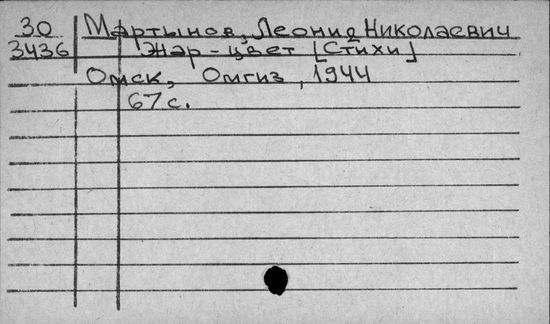 30 Мартынов, Леонид Николаевич
3436 Жар-цвет [Стихи]
Омск, Омгиз, 1944
67 с.